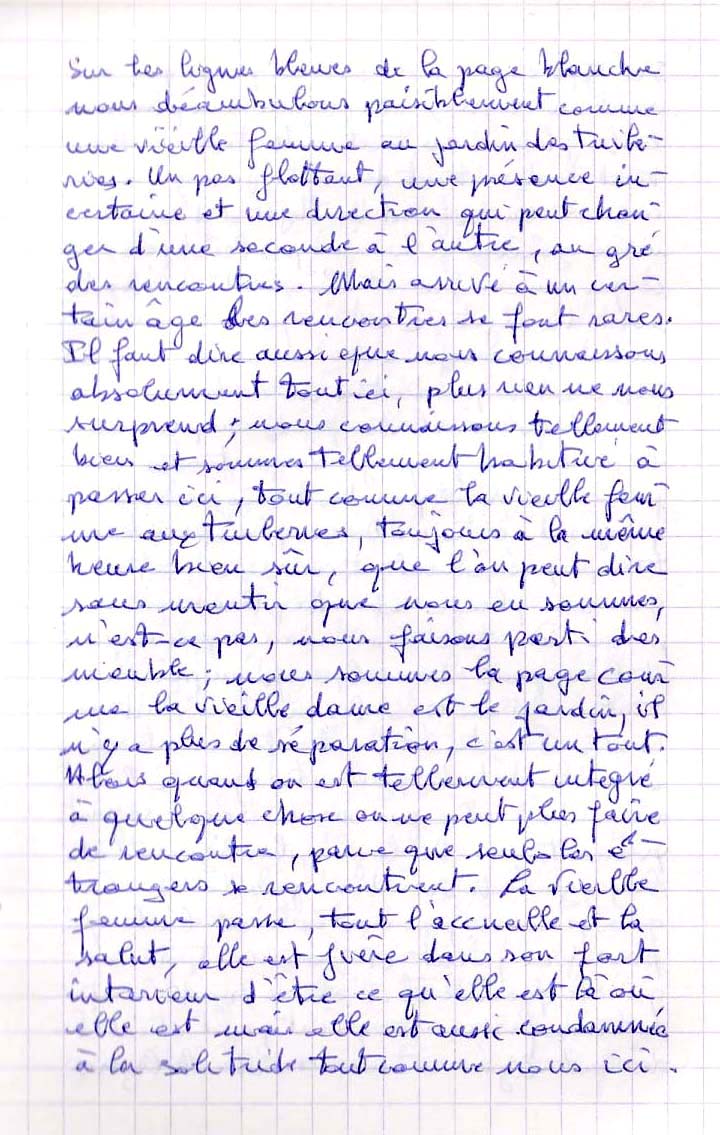 Sur les lignes bleues de la page blanche
nous déambulons paisiblement comme
une vieille femme au jardin des tuile-
ries. Un pas flottant, une présence in-
certaine et une direction qui peut chan-
ger d'une seconde à l'autre, au gré
des rencontres. Mais arrivé à un cer-
tain âge les rencontres se font rares.
Il faut dire aussi que nous connaissons
absolument tout ici, plus rien ne nous
surprend ; nous connaissons tellement
bien et sommes tellement habitué à
passer ici, tout comme la vieille fem-
me aux tuileries, toujours à la même
heure bien sûr, que l'on peut dire
sans mentir que nous en sommes,
n'est-ce pas, nous faisons parti des
meuble ; nous sommes la page com-
me la vieille dame est le jardin, il
n'y a plus de séparation, c'est un tout.
Alors quand on est tellement intégré
à quelque chose on ne peut plus faire
de rencontre, parce que seuls les é-
trangers se rencontrent. La vieille
femme passe, tout l'accueille et la
salut, elle est fière dans son fort
interieur d'être ce qu'elle est là où
elle est mais elle est aussi condamnée
à la solitude tout comme nous ici.